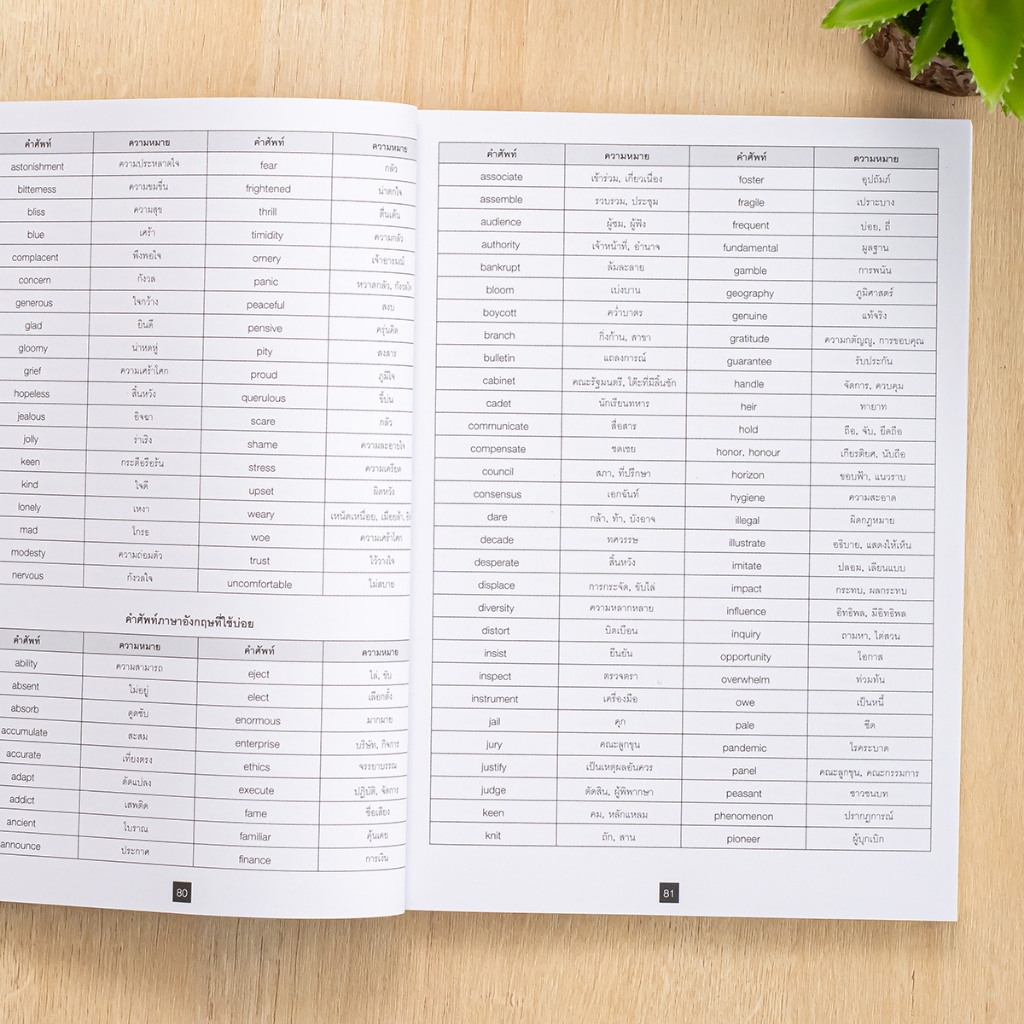 คำศัพท์ ความหมาย คำศัพท์ ความหมาย
astonishment ความประหลาดใจ fear กลัว
bitterness ความขมขื่น frightened น่าตกใจ
bliss ความสุข thrill ตื่นเต้น
blue เศร้า timidity ความกลัว
complacent พึงพอใจ ornery เจ้าอารมณ์
concern กังวล panic หวาดกลัว,
generous ใจกว้าง peaceful สงบ
glad ยินดี pensive ครุ่นคิด
gloomy น่าหดหู่ pity สงสาร
grief ความเศร้าโศก proud ภูมิใจ
hopeless สิ้นหวัง querulous ขี้บ่น
jealous อิจฉา scare กลัว
jolly ร่าเริง shame ความละอายใจ
keen กระตือรือร้น stress ความเครียด
kind ใจดี upset ผิดหวัง
lonely เหงา weary เหน็ดเหนื่อย, เมื่อยล้า,
mad โกรธ woe ความเศร้าโศก
modesty ความถ่อมตัว trust ไว้วางใจ
nervous กังวลใจ uncomfortable ไม่สบาย
คำศัพท์ภาษาอังกฤษที่ใช้บ่อย
คำศัพท์ ความหมาย คำศัพท์ ความหมาย
ability ความสามารถ eject ไล่, ขับ
absent ไม่อยู่ elect เลือกตั้ง
absorb ดูดซับ enormous มากมาย
accumulate สะสม enterprise บริษัท, กิจการ
accurate เที่ยงตรง ethics จรรยาบรรณ
adapt ดัดแปลง execute ปฏิบัติ, จัดการ
addict เสพติด fame ชื่อเสียง
ancient โบราณ familiar คุ้นเคย
announce ประกาศ finance การเงิน
80
คำศัพท์ ความหมาย คำศัพท์ ความหมาย
associate เข้าร่วม, เกี่ยวเนื่อง foster อุปถัมภ์
assemble รวบรวม, ประชุม fragile เปราะบาง
audience ผู้ชม, ผู้ฟัง frequent บ่อย, ถี่
authority เจ้าหน้าที่, อำนาจ fundamental มูลฐาน
bankrupt ล้มละลาย gamble การพนัน
bloom เบ่งบาน geography ภูมิศาสตร์
boycott คว่ำบาตร genuine แท้จริง
branch กิ่งก้าน, สาขา gratitude ความกตัญญู, การขอบคุณ
bulletin แถลงการณ์ guarantee รับประกัน
cabinet คณะรัฐมนตรี, โต๊ะที่มีลิ้นชัก handle จัดการ, ควบคุม
cadet นักเรียนทหาร heir ทายาท
communicate สื่อสาร hold ถือ, จับ, ยึดถือ
compensate ชดเชย honor, honour เกียรติยศ, นับถือ
council สภา, ที่ปรึกษา horizon ขอบฟ้า, แนวราบ
consensus เอกฉันท์ hygiene ความสะอาด
dare กล้า, ท้า, บังอาจ illegal ผิดกฎหมาย
decade ทศวรรษ illustrate อธิบาย, แสดงให้เห็น
desperate สิ้นหวัง imitate ปลอม, เลียนแบบ
displace การกระจัด, ขับไล่ impact กระทบ, ผลกระทบ
diversity ความหลากหลาย influence อิทธิพล, มีอิทธิพล
distort บิดเบือน inquiry ถามหา, ไต่สวน
insist ยืนยัน opportunity โอกาส
inspect ตรวจตรา overwhelm ท่วมท้น
instrument เครื่องมือ owe เป็นหนี้
jail คุก pale ซีด
jury คณะลูกขุน pandemic โรคระบาด
justify เป็นเหตุผลอันควร panel คณะลูกขุน, คณะกรรมการ
judge ตัดสิน, ผู้พิพากษา peasant ชาวชนบท
keen คม, หลักแหลม phenomenon ปรากฏการณ์
knit ถัก, สาน pioneer ผู้บุกเบิก
81